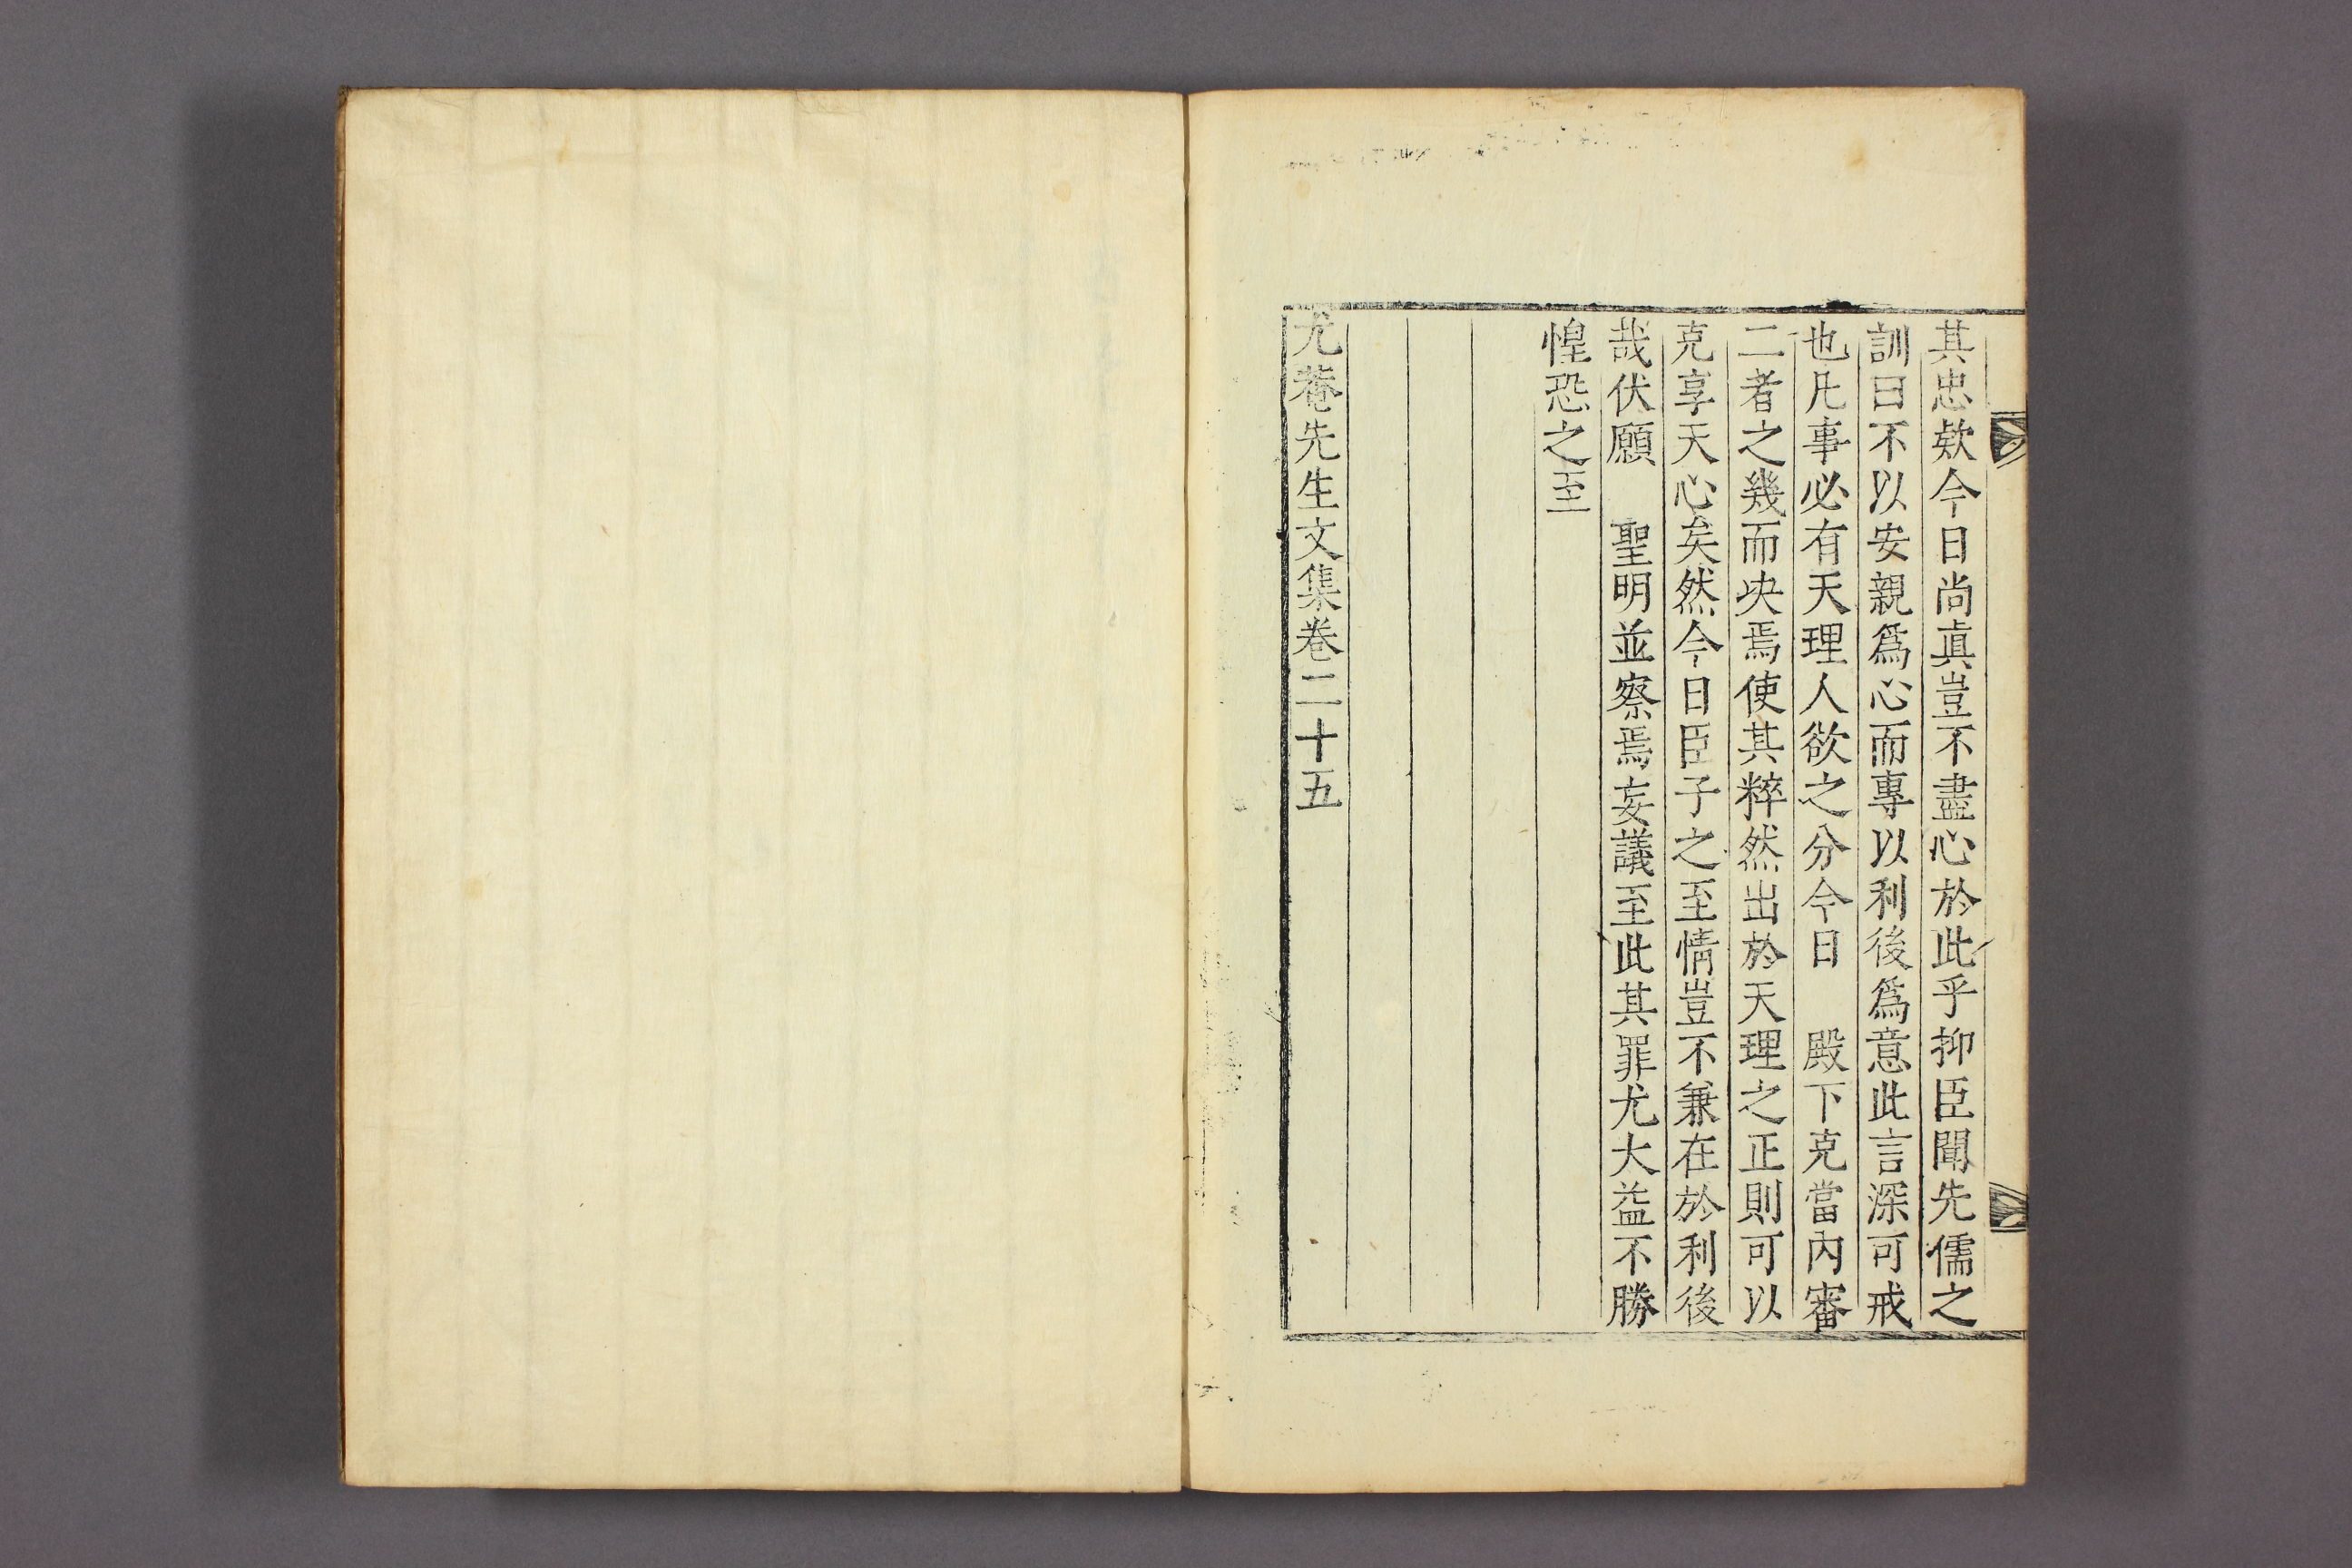 其忠欤今日尚眞豈不盡心於此乎抑臣聞先儒之
訓曰不以安親爲心而專以利後爲意此言深可戒
也凡事必有天理人欲之分今日　殿下克當內審
二者之幾而决焉使其粹然出於天理之正則可以
克享天心矣然今日臣子之至情豈不兼在於利後
哉伏願　聖明並察焉妄議至此其罪尤大益不勝
惶恐之至
尤菴先生文集卷二十五